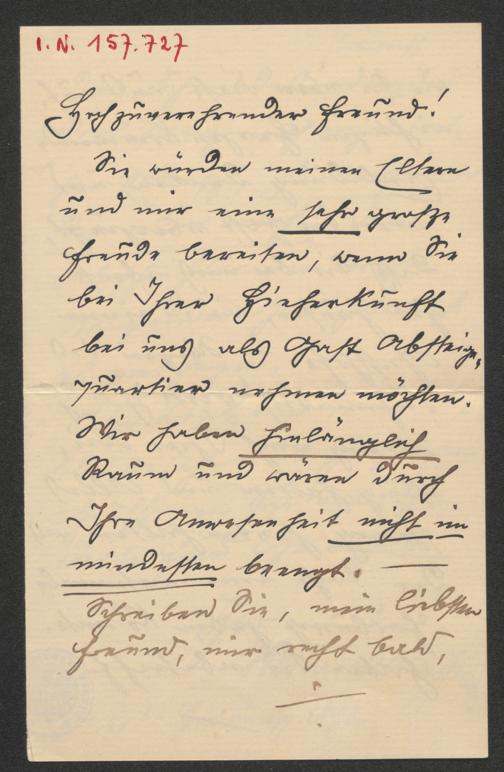 I.N. 157.727
Hochzuverehrender Freund!
Sie würden meinen Eltern
und mir eine sehr große
Freude bereiten, wenn Sie
bei Ihrer Hieherkunft
bei uns als Gast Absteige-
quartier nehmen möchten.
Wir haben hinlänglich
Raum und wären durch
Ihre Anwesenheit nicht im
mindesten beengt. —
Schreiben Sie, mein liebster
Freund, mir recht bald,